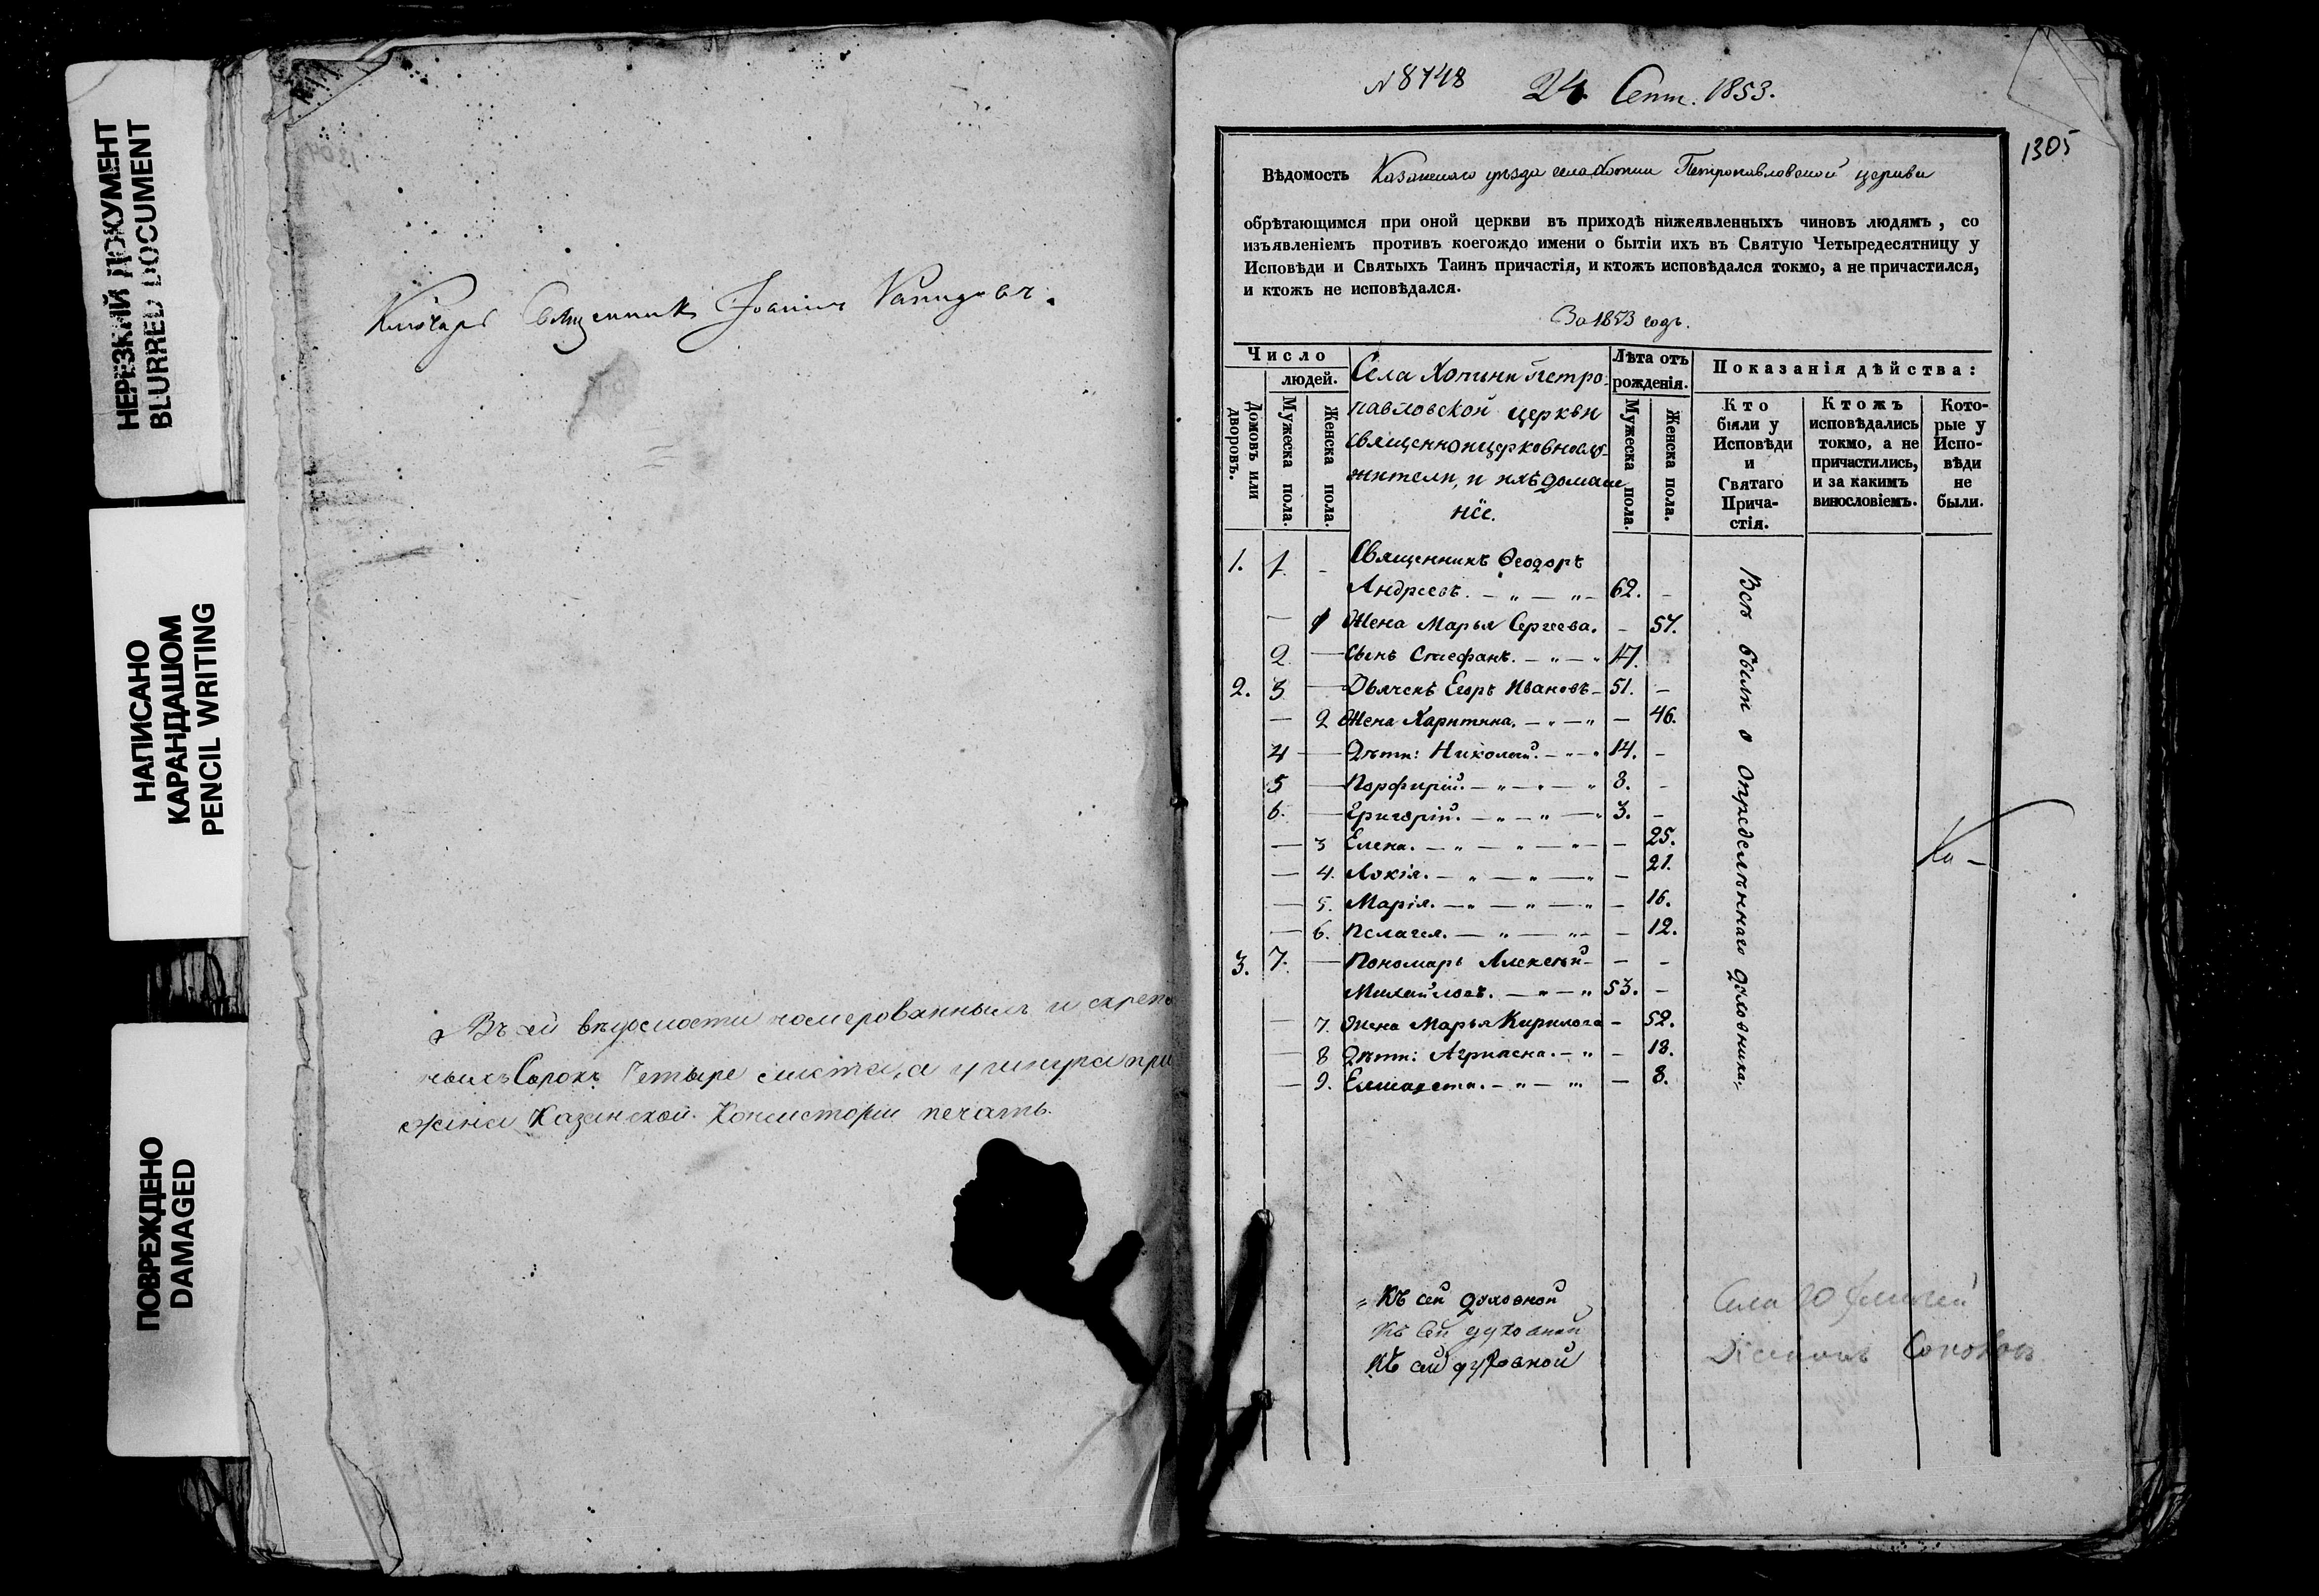 НЕРЕЗКИЙ ДОКУМЕНТ
BLURRED DOCUMENT
НАПИСАНО
КАРАНДАШОМ
PENCIL WRITING
ПОВРЕЖДЕНО
DAMAGED
Ключарь Священникъ Іоаннъ
Въ сей вѣдомости номерованныхъ и скрепл
ныхъ Сорокъ Четыре листа, а у шнура при
жена Казанской Консисторіи печать.
№ 8748 24 Сент. 1853.
1305
Вѣдомость Казанскаго уѣзда села Хотни Петропавловской церкви
обрѣтающимся при оной церкви въ приходѣ нижеявленныхъ чиновъ людямъ, со
изъявленіемъ противъ коегождо имени о бытіи ихъ въ Святую Четыредесятницу у
Исповѣди и Святыхъ Таинъ причастія, и ктожъ исповѣдался токмо, а не причастился,
и ктожъ не исповѣдался.
За 1853 годъ.
Число
людей.
Домовъ или дворовъ.
Мужеска пола.
Женска пола.
Села Хотни Петро-
павловской церкви
священноицерковнослу-
жители, и ихъ домаш
ніе.
Лѣта отъ
рожденія.
Мужеска пола.
Женска пола.
Показанія дѣйства:
Кто
были у
Исповѣди
и
Святаго
Прича-
стія.
Ктожъ
исповѣдались
токмо, а не
причастились,
и за какимъ
винословіемъ.
Кото-
рые у
Испо-
вѣди
не
были.
1. 1. - Священникъ Ѳеодоръ
Андреевъ. — „ — „ — 62. -
— 1 Жена Марья Сергеева. - 57.
2. — Сынъ Стефанъ. — „ — „ 17.
2. 3 — Дьячекъ Егоръ Ивановъ — 51. -
— 2 Жена Харитина. — „ — „ — 46.
4 — Дѣти: Николай. — „ — „ 14. -
5 — Порфирій. — „ — „ — „ 8. -
6. — Григорій. — „ — „ — „ 3. -
— 3 Елена. — „ — „ — „ — - 25.
— 4. Лукія. — „ — „ — „ - 21.
— 5. Марія. — „ — „ — „ - 16.
— 6. Пелагея. — „ — „ — - 12.
3. 7. — Пономарь Алексѣй — - -
Михайловъ. — „ — „ 53. -
— 7. Жена Марья Кирилова - 52.
— 8 Дѣти: Агрипена. — „ - 18.
— 9. Елисавета. — „ — „ — 8.
Всѣ были у Опредѣленнаго духовника.
Ка —
Къ сей духовной
Къ сей духовной
Къ сей духовной
Села